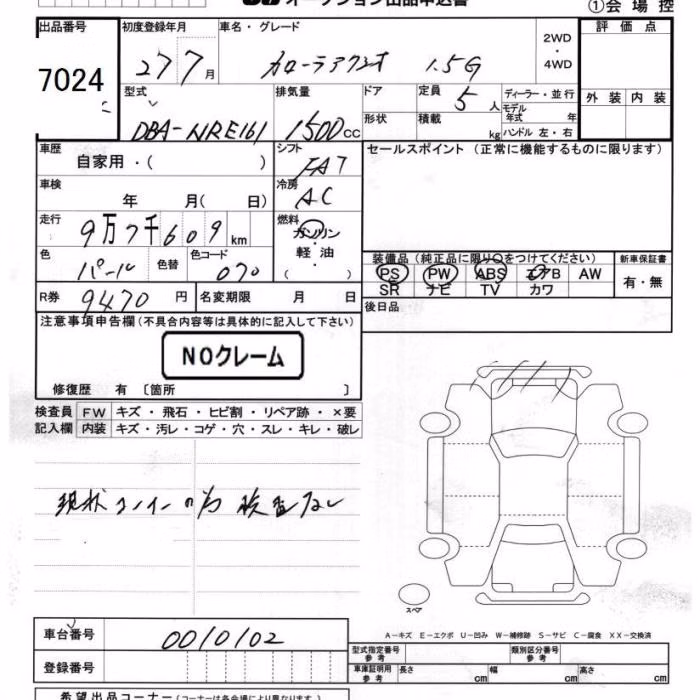 オークション出品申込書
①会場控
出品番号 初度登録年月 車名・グレード 2WD・4WD 評価点
7024 27 7月 カローラアクシオ 1.5G
型式 排気量 ドア 定員 5人 ディーラー・並行 外装 内装
DBA-NRE161 1500cc 形状 積載 kg モデル年式 年
ハンドル 左・右
車歴 自家用・( ) シフト FAT セールスポイント(正常に機能するものに限ります)
車検 年 月( 日) 冷房 AC
走行 9万7千609km 燃料 ガソリン・軽油・( )
色 パール 色替 色コード 070
装備品(純正品に限り○をつけてください) 新車保証書
PS PW ABS エアB AW 有・無
SR ナビ TV カワ
R券 9470円 名変期限 月 日 後日品
注意事項申告欄(不具合内容等は具体的に記入して下さい)
NOクレーム
修復歴 有 〔箇所 〕
検査員 FW キズ・飛石・ヒビ割・リペア跡・×要
記入欄 内装 キズ・汚レ・コゲ・穴・スレ・キレ・破レ
現状コーナーの為 検査なし
スペア
車台番号 0010102
A-キズ E-エクボ U-凹み W-補修跡 S-サビ C-腐食 XX-交換済
型式指定番号 参考 類別区分番号 参考
登録番号 車庫証明用 参考 長さ cm 幅 cm 高さ cm
希望出品コーナー(コーナーは各会場により異なります)